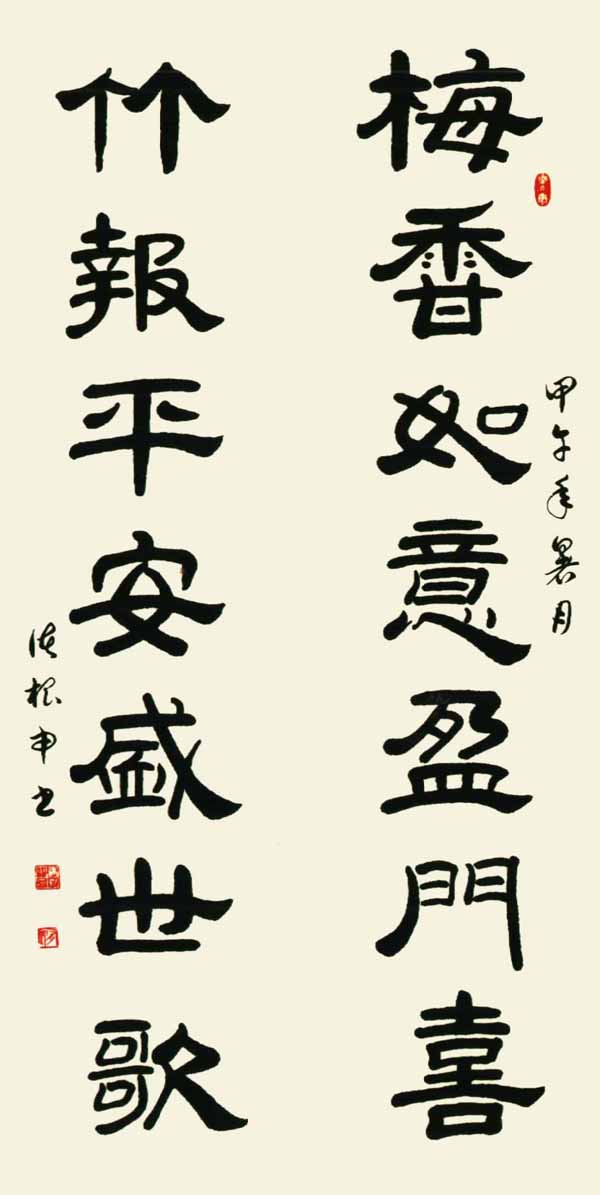 甲午年暑月
梅香如意盈門喜
竹報平安盛世歌
根申书